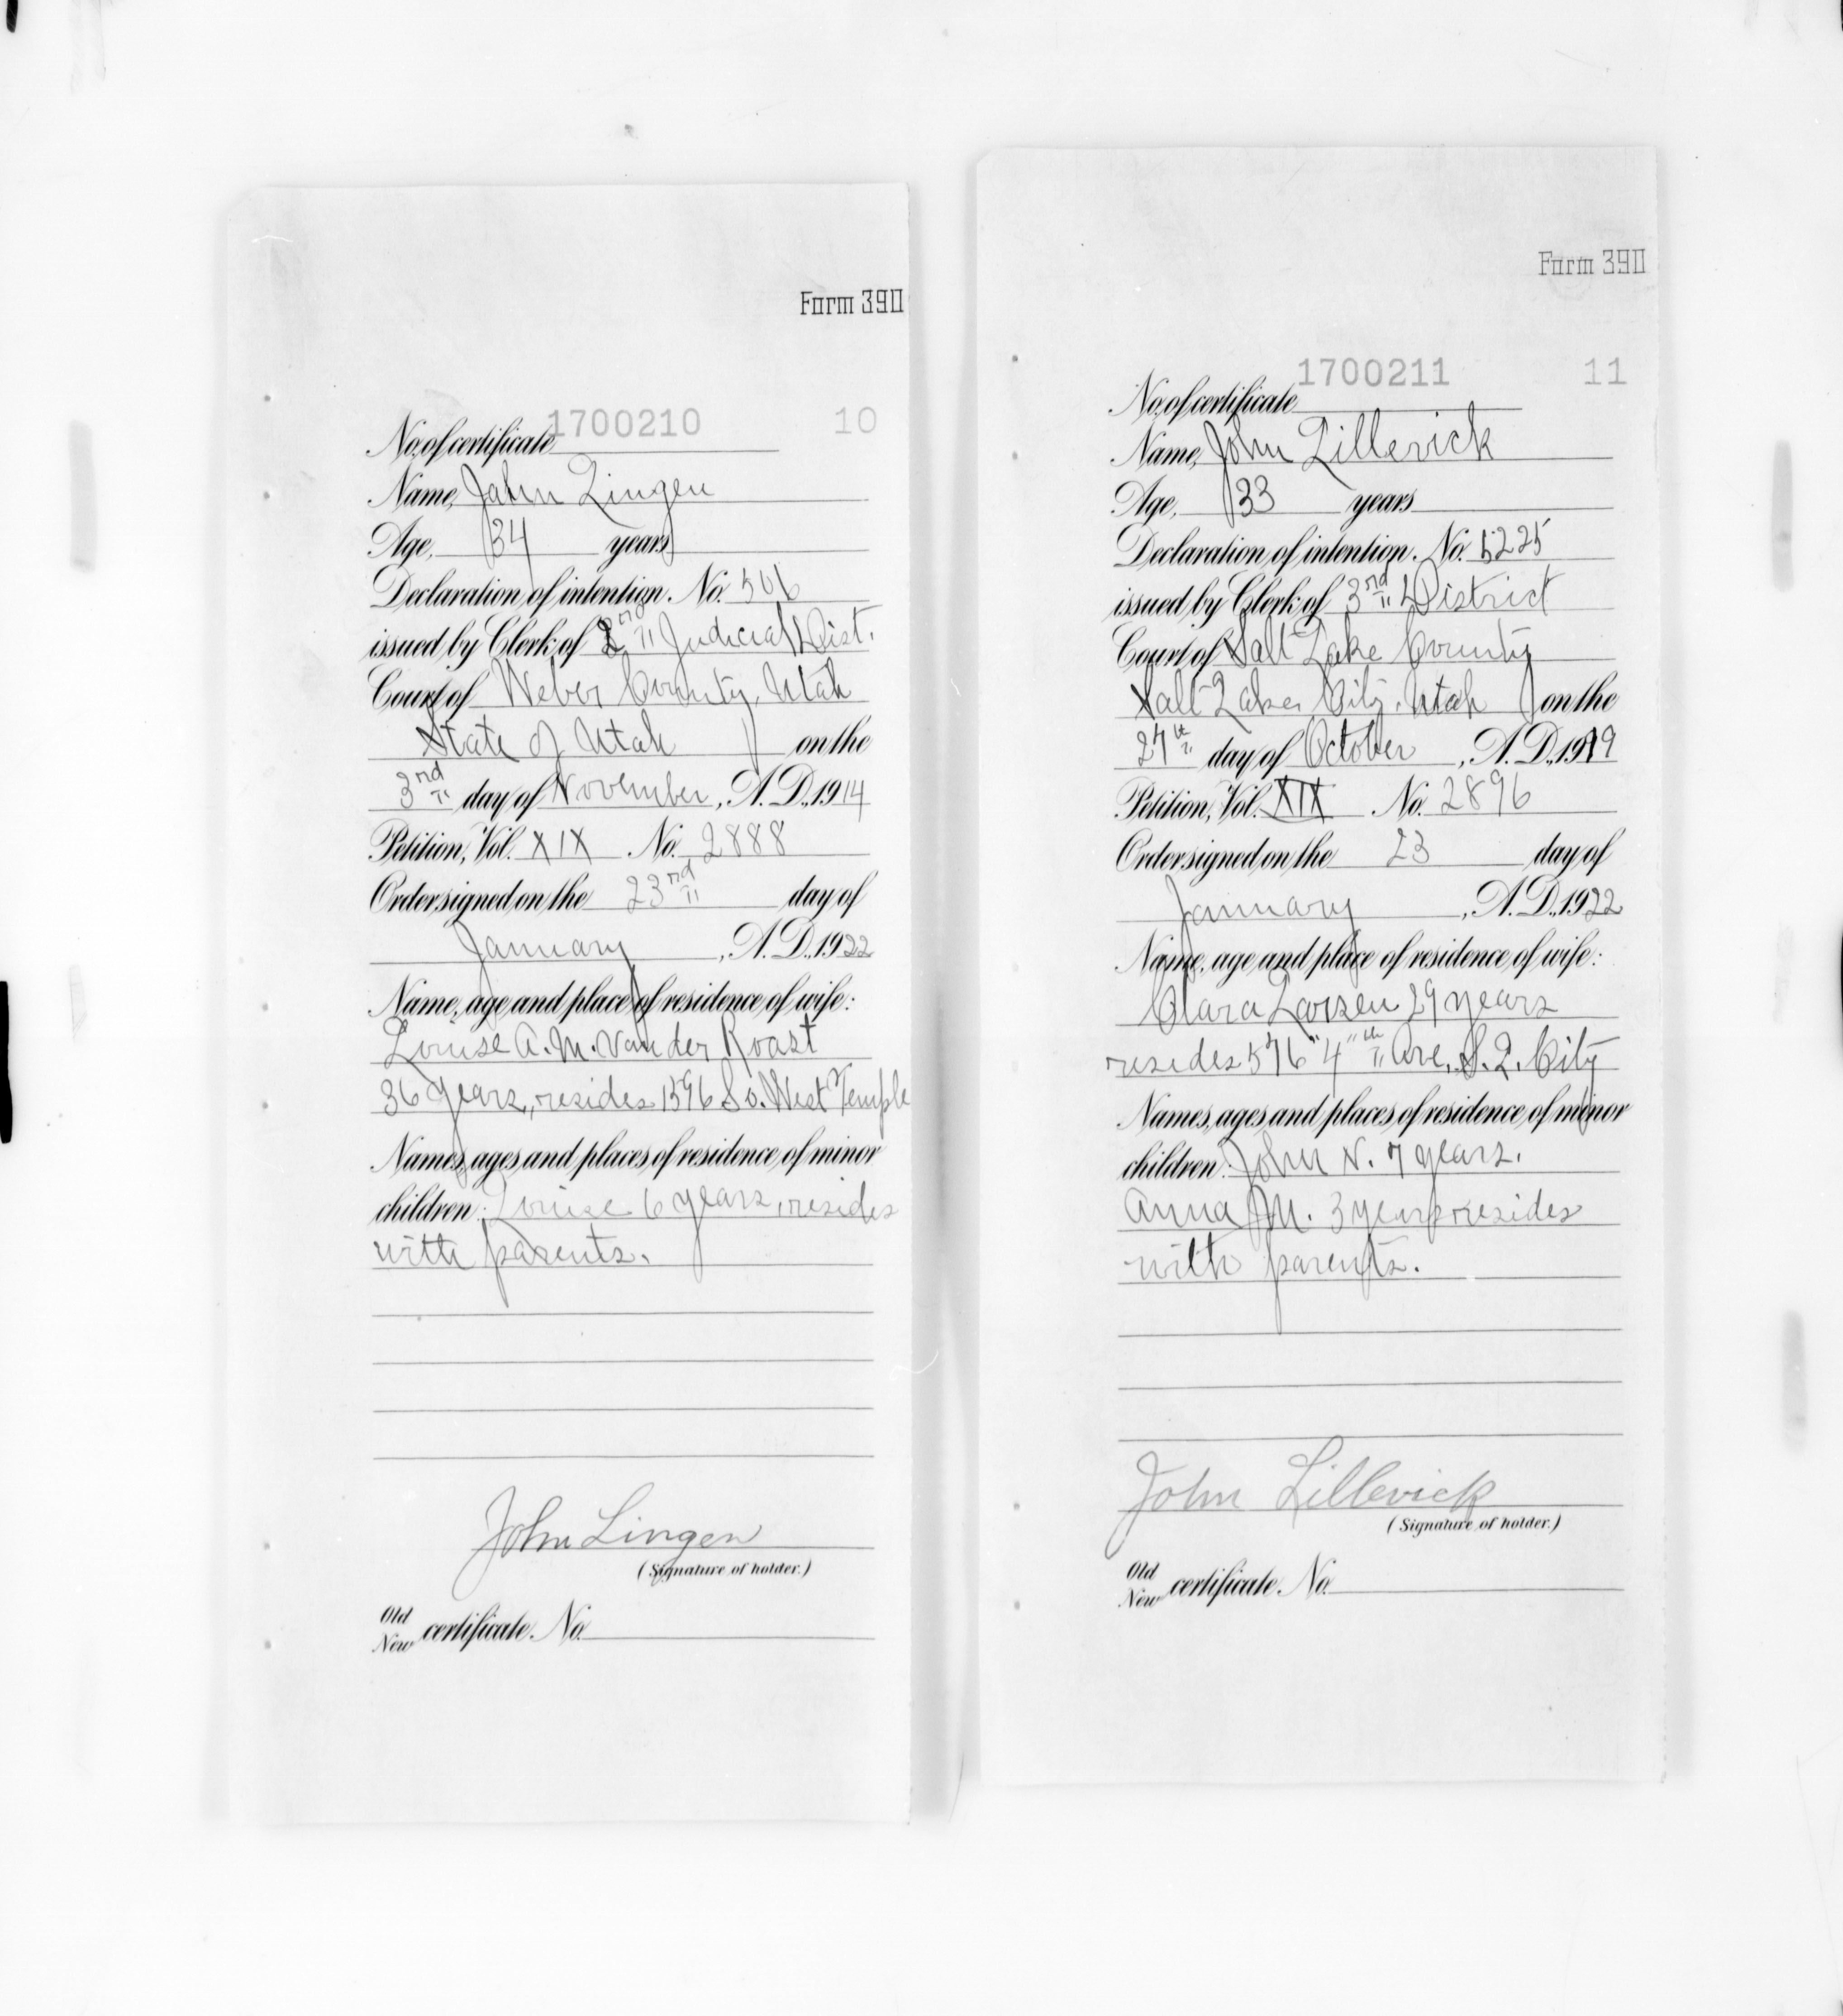 Form 390
No. of certificate 1700210 10
Name, John Lingen
Age, 34 years
Declaration of intention. No. 506
issued by Clerk of 2nd Judicial Dist.
Court of Weber County, Utah
State of Utah on the
3rd day of November, A.D., 1914
Petition, Vol. XIX No. 2888
Order signed on the 23rd day of
January, A.D., 1922
Name, age and place of residence of wife:
Louise A. M. Van der Roast
36 years, resides 1596 So. West Temple
Names, ages and places of residence of minor
children: Louise 6 years, resides
with parents.
John Lingen
(Signature of holder.)
Old
New certificate No.
Form 390
No. of certificate 1700211 11
Name, John Lillevick
Age, 33 years
Declaration of intention. No. 5225
issued by Clerk of 3rd District
Court of Salt Lake County
Salt Lake City, Utah on the
27th day of October, A.D., 1919
Petition, Vol. XIX No. 2896
Order signed on the 23 day of
January, A.D., 1922
Name, age and place of residence of wife:
Clara Larsen 29 years
resides 576 "4"th Ave. S. L. City
Names, ages and places of residence of minor
children: John N. 7 years.
Anna M. 3 years resides
with parents.
John Lillevick
(Signature of holder.)
Old
New certificate No.